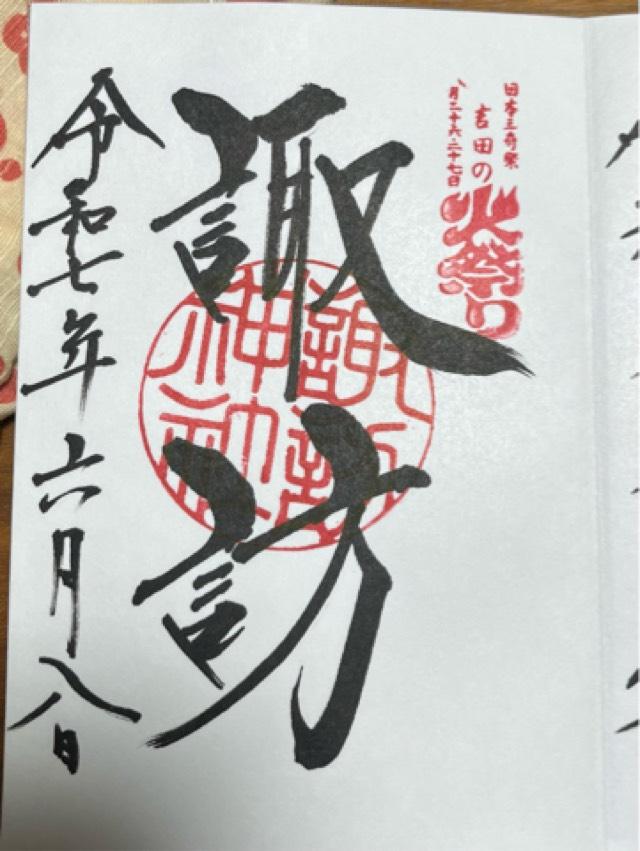 日本三奇祭
吉田の
八月二十六、二十七日
火祭り
諏訪
諏訪
神社
令和七年六月八日